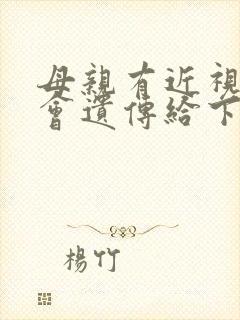 母親有近視
會遺傳給下
楊竹